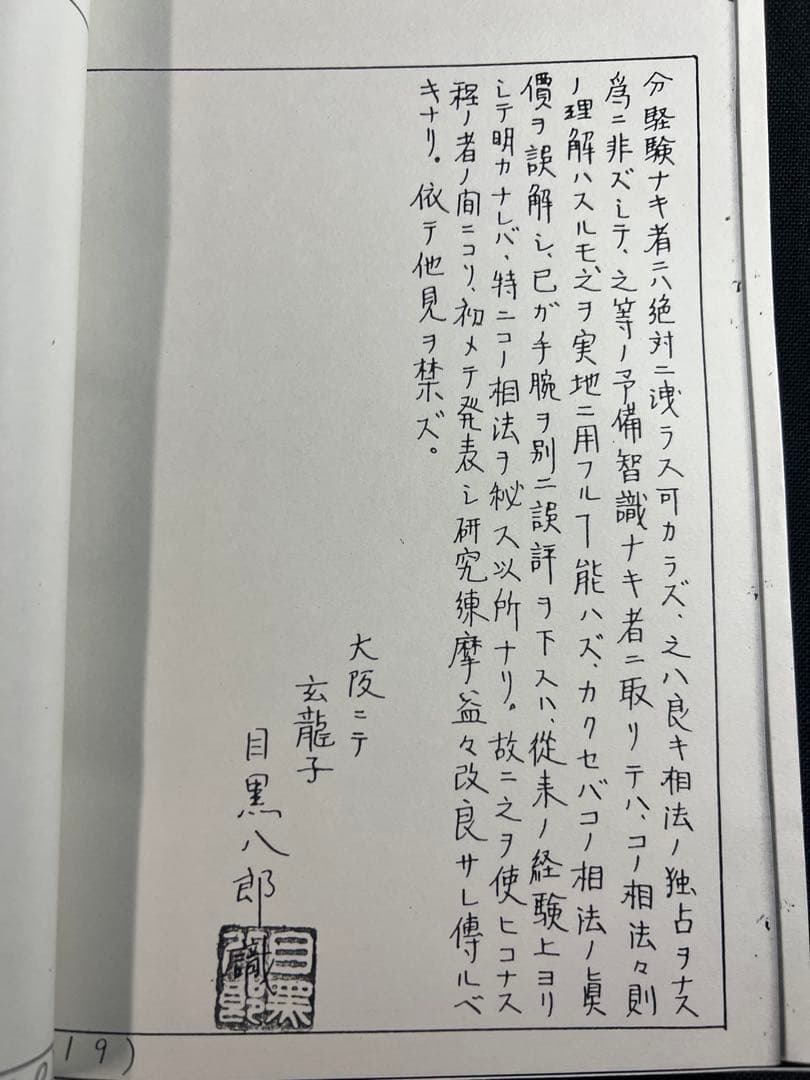 分経験ナキ者ニハ絶対ニ洩ラス可カラズ、之ハ良キ相法ノ独占ヲナス
為ニ非ズシテ、之等ノ予備智識ナキ者ニ取リテハ、コノ相法々則
ノ理解ハスルモ、之ヲ実地ニ用フルヿ能ハズ、カクセバコノ相法ノ眞
價ヲ誤解シ、己ガ手腕ヲ別ニ誤評ヲ下スハ、従来ノ経験上ヨリ
シテ明カナレバ、特ニコノ相法ヲ秘ス以所ナリ。故ニ之ヲ使ヒコナス
程ノ者ノ間ニコソ、初メテ発表シ研究練摩益々改良サレ傳ルベ
キナリ。依テ他見ヲ禁ズ。
大阪ニテ
玄龍子
目黒八郎
目黒
19)